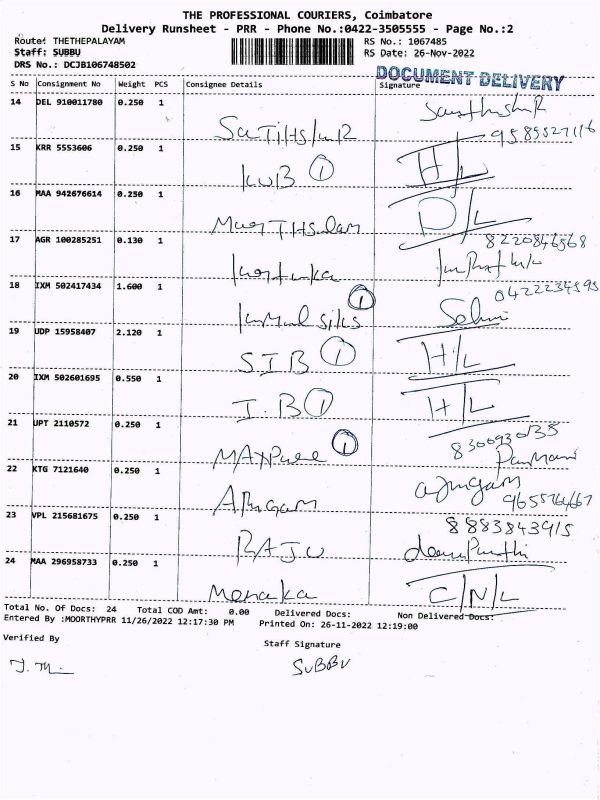 THE PROFESSIONAL COURIERS, Coimbatore
Delivery Runsheet - PRR - Phone No.:0422-3505555 - Page No.:2
Route: THETHEPALAYAM RS No.: 1067485
Staff: SUBBU RS Date: 26-Nov-2022
DRS No.: DCJB106748502
DOCUMENT DELIVERY
S No Consignment No Weight PCS Consignee Details Signature
14 DEL 910011780 0.250 1
9585527116
15 KRR 5553606 0.250 1
KVB 1 H/L
16 MAA 942676614 0.250 1
D/L
17 AGR 100285251 0.130 1 8220846568
18 IXM 502417434 1.600 1 04222234595
1
19 UDP 15958407 2.120 1
SIB 1 H/L
20 IXM 502601695 0.550 1
I.B 1 H/L
21 UPT 2110572 0.250 1 8300930135
1
22 KTG 7121640 0.250 1
23 VPL 215681675 0.250 1 8883843915
RAJU
24 MAA 296958733 0.250 1
Menaka C/N/L
Total No. Of Docs: 24 Total COD Amt: 0.00 Delivered Docs: Non Delivered Docs:
Entered By :MOORTHYPRR 11/26/2022 12:17:30 PM Printed On: 26-11-2022 12:19:00
Verified By Staff Signature
SUBBU